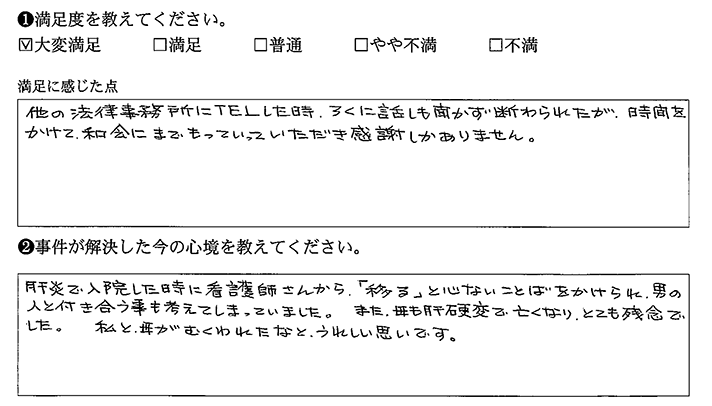 ❶満足度を教えてください。
☑大変満足 □満足 □普通 □やや不満 □不満
満足に感じた点
他の法律事務所にTELした時、ろくに話しも聞かず断わられたが、時間を
かけて、和会にまでもっていっていただき感謝しかありません。
❷事件が解決した今の心境を教えてください。
肝炎で入院した時に看護師さんから、「移る」と心ないことばをかけられ、男の
人と付き合う事も考えてしまっていました。 また、母も肝硬変で亡くなり、とても残念で
した。 私と、母がむくわれたなと、うれしい思いです。